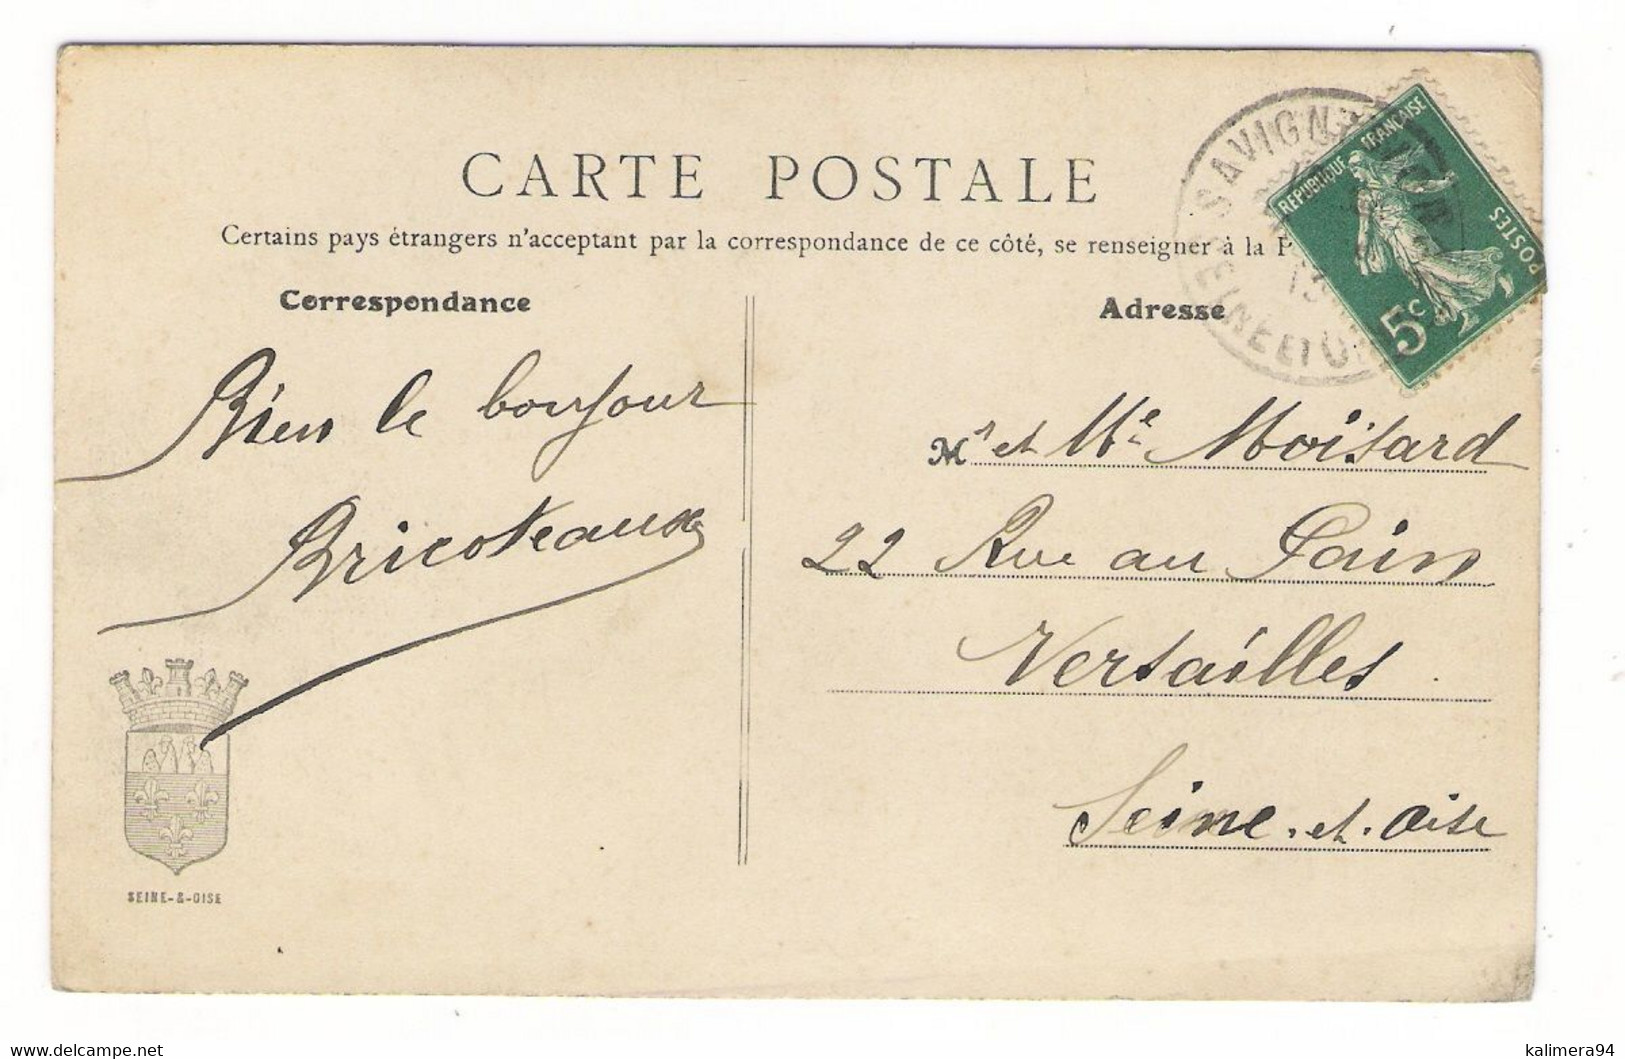 CARTE POSTALE
Certains pays étrangers n'acceptant par la correspondance de ce côté, se renseigner à la P
Correspondance
Bien le bonjour
Bricoteaux
SEINE-&-OISE
Adresse
Mr et Me Moisard
22 Rue au Pain
Versailles
Seine-et-Oise
RÉPUBLIQUE FRANÇAISE
POSTES
5c
SAVIGNY
SEINE ET O
13
delcampe.net
kalimera94